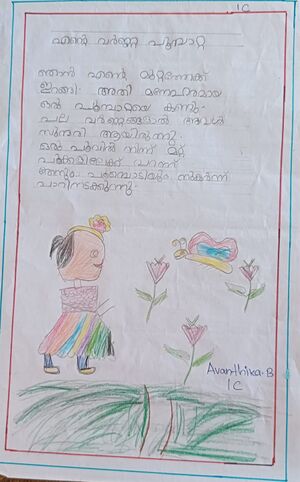 1C
എന്റെ വർണ്ണ പൂമ്പാറ്റ
ഞാൻ എന്റെ മുറ്റത്തേക്ക്
ഇറങ്ങി. അതി മനോഹരമായ
ഒരു പൂമ്പാറ്റയെ കണ്ടു.
പല വർണ്ണങ്ങളാൽ അവൾ
സുന്ദരി ആയിരുന്നു.
ഒരു പൂവിൽ നിന്ന് മറ്റു
പൂക്കളിലേക്ക് പറന്ന്
തേനും പൂമ്പൊടിയും നുകർന്ന്
പാറിനടക്കുന്നു.
Avanthika.B
1C